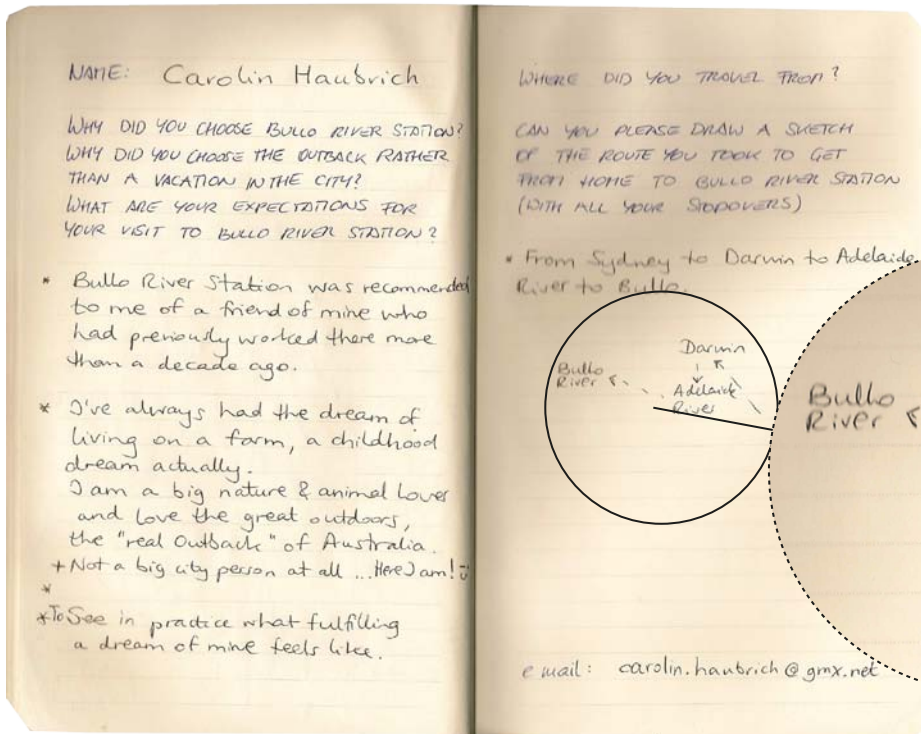 NAME: Carolin Haubrich
WHY DID YOU CHOOSE BULLO RIVER STATION?
WHY DID YOU CHOOSE THE OUTBACK RATHER
THAN A VACATION IN THE CITY?
WHAT ARE YOUR EXPECTATIONS FOR
YOUR VISIT TO BULLO RIVER STATION?
* Bullo River Station was recommended
to me of a friend of mine who
had previously worked there more
than a decade ago.
* I've always had the dream of
living on a farm, a childhood
dream actually.
I am a big nature & animal lover
and love the great outdoors,
the "real Outback" of Australia.
+ Not a big city person at all ... Here I am!
*
* To See in practice what fulfilling
a dream of mine feels like.
WHERE DID YOU TRAVEL FROM?
CAN YOU PLEASE DRAW A SKETCH
OF THE ROUTE YOU TOOK TO GET
FROM HOME TO BULLO RIVER STATION
(WITH ALL YOUR STOPOVERS)
* From Sydney to Darwin to Adelaide
River to Bullo.
Darwin
Bullo
River
Adelaide
River
Bullo
River
email: carolin.haubrich@gmx.net